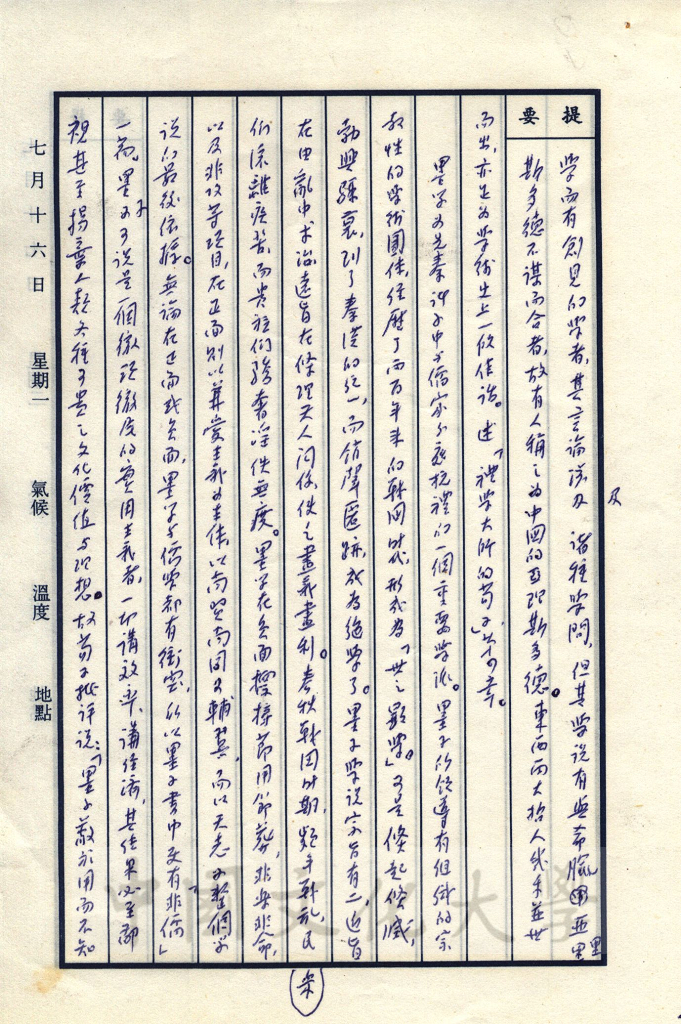 提要
學而有創見的學者,其言論涉及諸種學問,但其學說有與希臘亞里
斯多德不謀而合者,故有人稱之為中國的亞理斯多德。東西兩大哲人幾乎並世
而出,亦足為學術史上一段佳話。述「禮學大師的荀子」第十章。
墨學為先秦諸子中與儒家分庭抗禮的一個重要學派。墨子所領導有組織的宗
教性的學術團體,經歷了兩百年來的戰國時代,形成為「世之顯學」。可是條起條滅,
勃興驟衰,到了秦漢的統一,而銷聲匿跡,成為絕學了。墨子學說宗旨有二,近旨
在由亂中求治,遠旨在條理天人間役使之盡義盡利。春秋戰國時期,頻年戰亂,民
們流離疾苦,而貴族們驕奢淫佚無度。墨學在負面標榜節用節葬,非樂非命,
以及非攻等項目,在正面則以兼愛主義為主体,以尚賢尚同為輔翼,而以天志為整個學
說的最後依據。無論在正面或負面,墨學与儒學都有衝突,所以墨子書中更有「非儒」
一篇。墨子可說是一個徹頭徹尾的實用主義者,一切講效率,講經濟,其結果必至鄙
視甚至揚棄人類各種可貴之文化價值与理想。故荀子批評說:「墨子蔽於用而不知
七月十六日 星期一 氣候 溫度 地點
中國文化大學